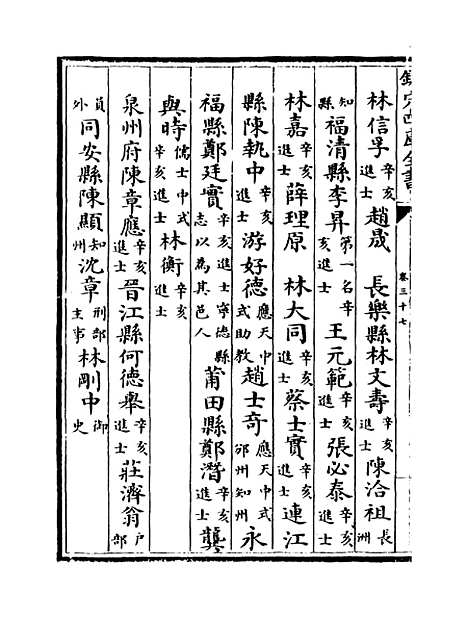 欽定四庫全書
卷三十七
林信孚辛亥進士趙晟 長樂縣林文壽辛亥進士陳洽祖長洲
知縣福清縣李昇第一名辛亥進士王元範辛亥進士張必泰辛亥進士
林嘉辛亥進士薛理原 林大同辛亥進士蔡士實辛亥進士連江
縣陳執中辛亥進士游好德應天中式助教趙士奇應天中式邠州知州永
福縣鄭廷實辛亥進士寧德縣志以為其邑人莆田縣鄭潛辛亥進士龔
與時儒士中式辛亥進士林衡辛亥進士
泉州府陳章應辛亥進士晉江縣何德舉辛亥進士莊濟翁戶部
員外同安縣陳顯知州沈章刑部主事林剛中御史